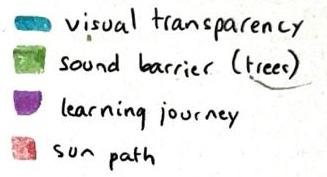 visual transparency
sound barrier (trees)
learning journey
sun path